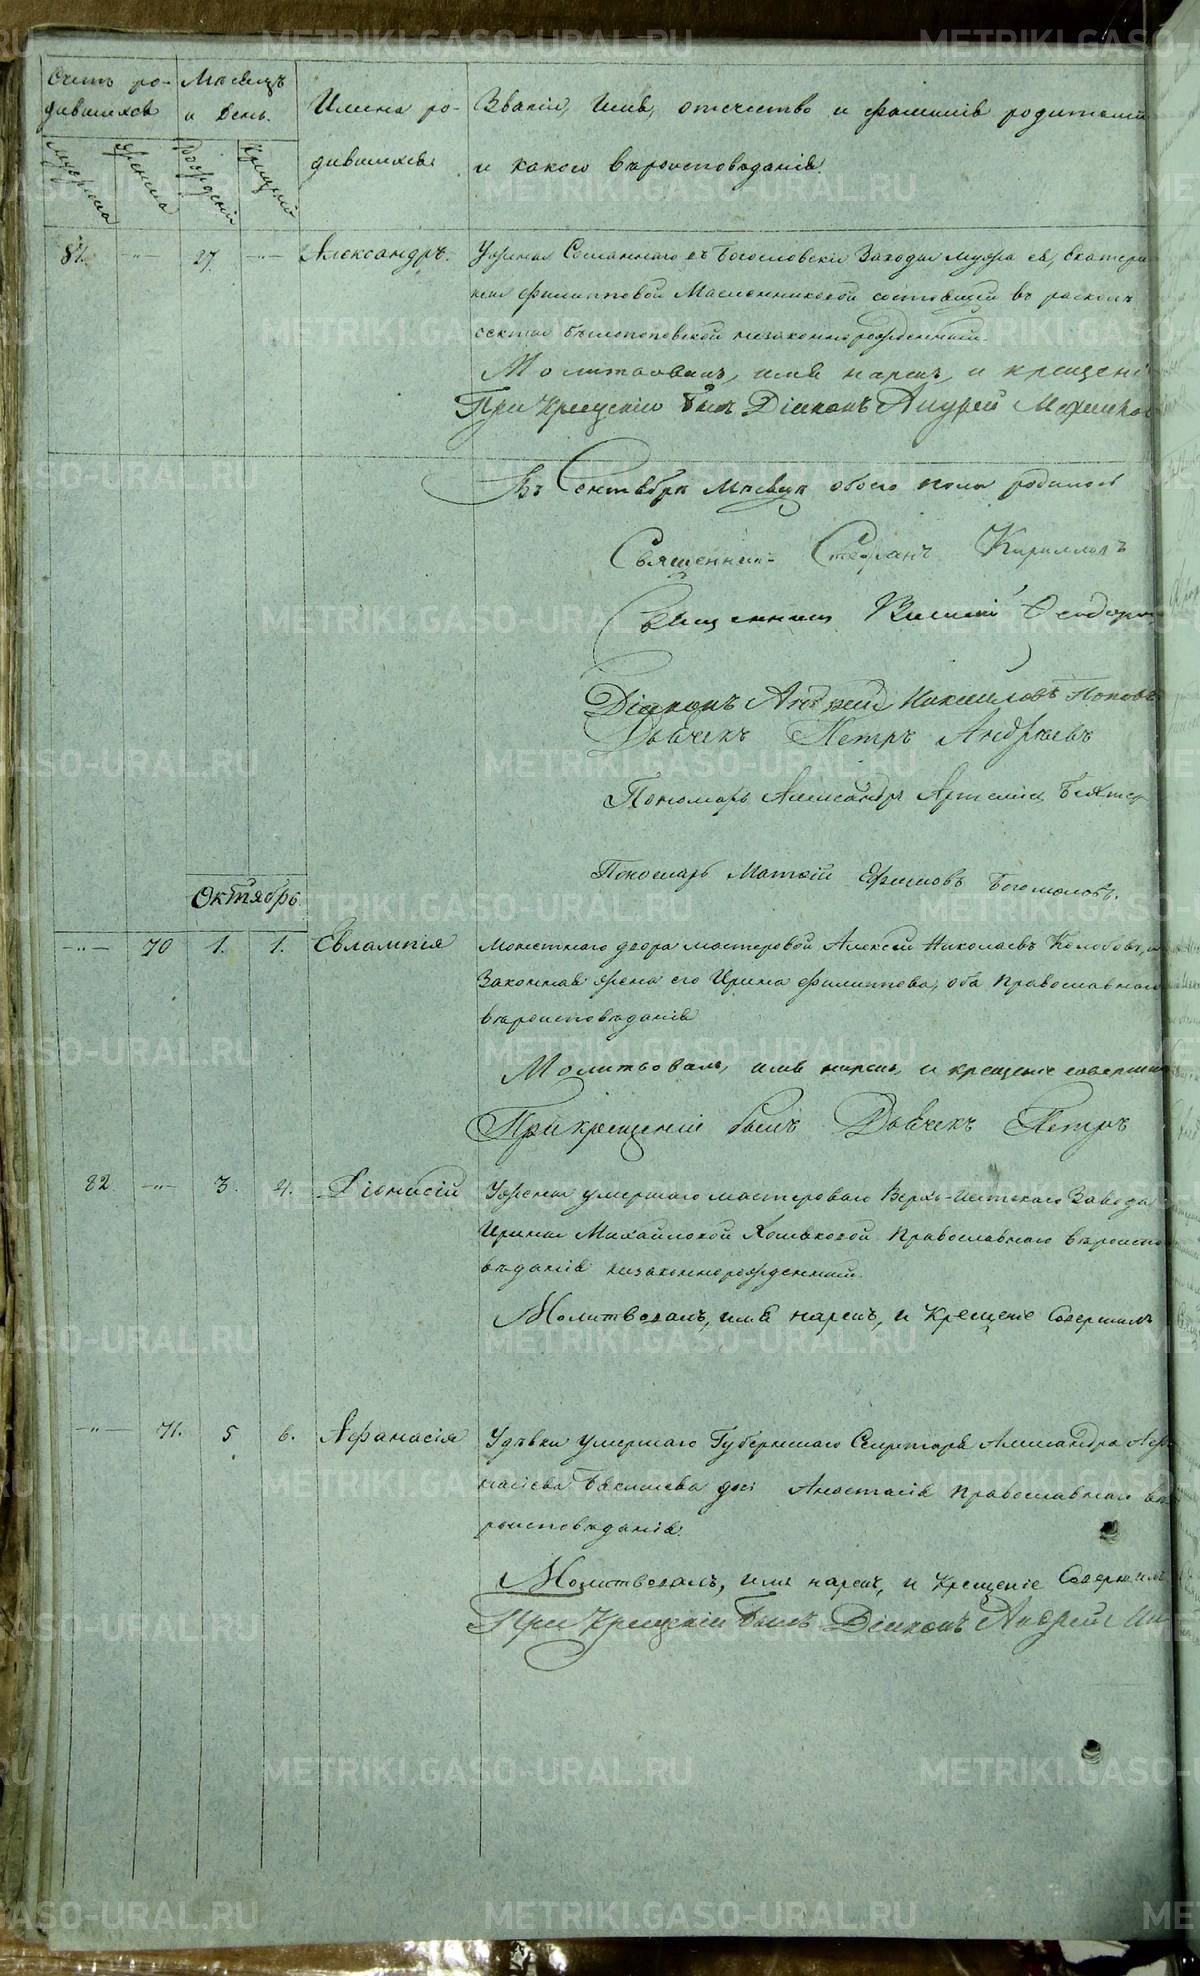 Счетъ ро-
дившихся
Мѣсяцъ
и день.
Имена ро-
дившихся
Званіе, имя, отчество и фамилія родителей
и какого вѣроисповѣданія.
Мужеска
Женска
Рожденія
Крещенія
81. —"— 27. —"— Александръ. Жены Сосланнаго въ Богословскіе Заводы мужа ея, Екатери
ны Филипповой Масленниковой состоящей въ расколѣ
секты бѣглопоповской незаконнорожденный.
Молитвовалъ, имя нарекъ, и крещені
При Крещеніи былъ Діаконъ Андрей
Въ Сентябрѣ Мѣсяцѣ обоего пола родилось
Священникъ Стефанъ Кирилловъ
Священникъ Василій Феодоро
Діаконъ Андрей Николаевъ Поповъ
Дьячекъ Петръ Андреевъ
Пономарь Александръ
Пономарь Матѳій Ефимовъ Богомоловъ.
Октябрь
—"— 70 1. 1. Евлампія Монетнаго двора мастеровой Алексѣй Николаевъ Колобовъ, и
Законная жена его Ирина Филиппова, оба Православнаго
вѣроисповѣданія
Молитвовалъ, имя нарекъ, и крещеніе совершилъ
При крещеніи былъ Дьячекъ Петръ
82. —"— 3. 4. Діонисій У жены умершаго мастероваго Верхъ-Исетскаго Завода
Ирины Михайловой Хомяковой Православнаго вѣроиспо
вѣданія незаконнорожденный.
Молитвовалъ, имя нарекъ, и Крещеніе Совершилъ
—"— 71. 5 6. Афанасія У дѣвки умершаго Губернскаго Секретаря Александра Афа
насіева дочь Анастасія Православнаго вѣ
роисповѣданія.
Молитвовалъ, имя нарекъ, и Крещеніе Совершилъ
При Крещеніи былъ Діаконъ Андрей Ни
METRIKI.GASO-URAL.RU